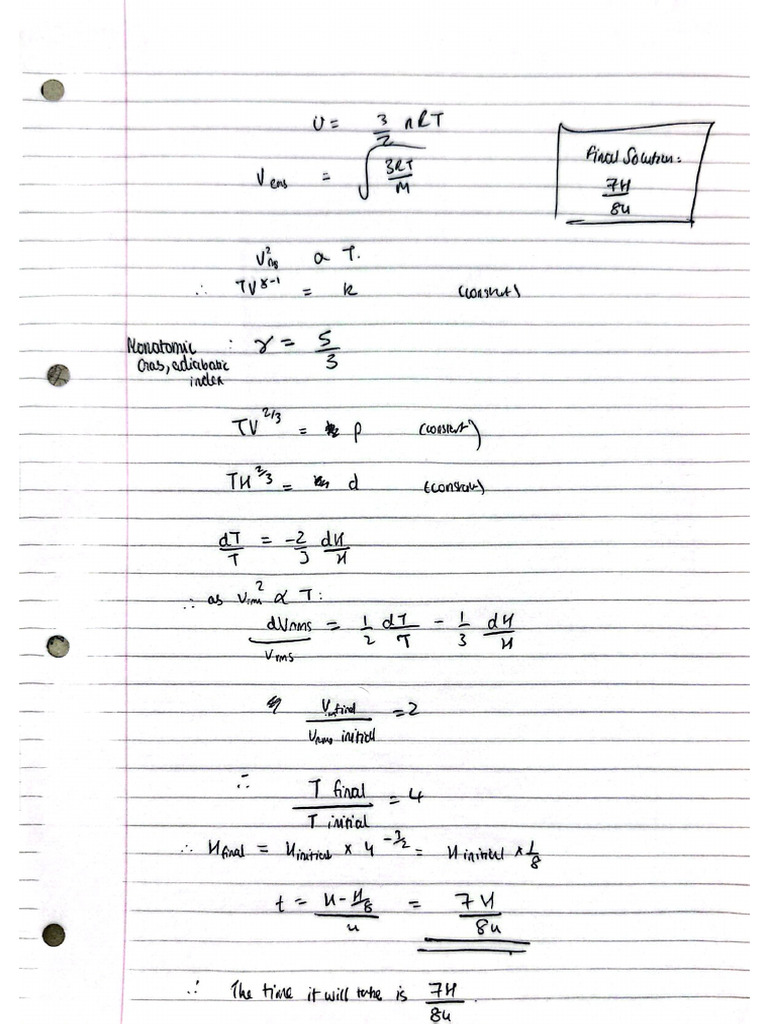 U = 3/2 nRT
Final Solution:
7H/8u
Vrms = √(3RT/M)
V²rms α T.
∴ TV^(γ-1) = k (constant)
Monatomic Gas, adiabatic index : γ = 5/3
TV^(2/3) = p (constant)
TH^(2/3) = d (constant)
dT/T = -2/3 dH/H
∴ as Vrms² α T:
dVrms/Vrms = 1/2 dT/T - 1/3 dH/H
Vrms final/Vrms initial = 2
∴ T final/T initial = 4
∴ H final = H initial × 4^(-3/2) = H initial × 1/8
t = (H - H/8)/u = 7H/8u
∴ The time it will take is 7H/8u.